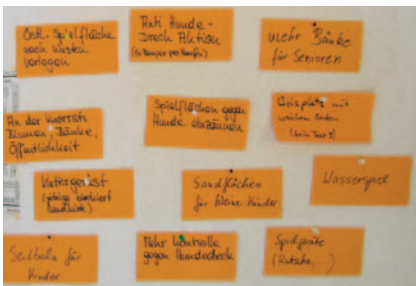 Östl. Spielfläche
nach Westen
verlegen
Anti Hunde-
Dreck Aktion
mehr Bänke
für Senioren
An der
Blumen, Bänke,
Öffentlichkeit
Spielflächen gegen
Hunde einzäunen
mit
weichem Boden
Klettergerüst
Sandflächen
für kleine Kinder
Wasserspiel
Seilbahn für
Kinder
Mehr Kontrolle
gegen Hundedreck
Spielgeräte
(Rutsche, )